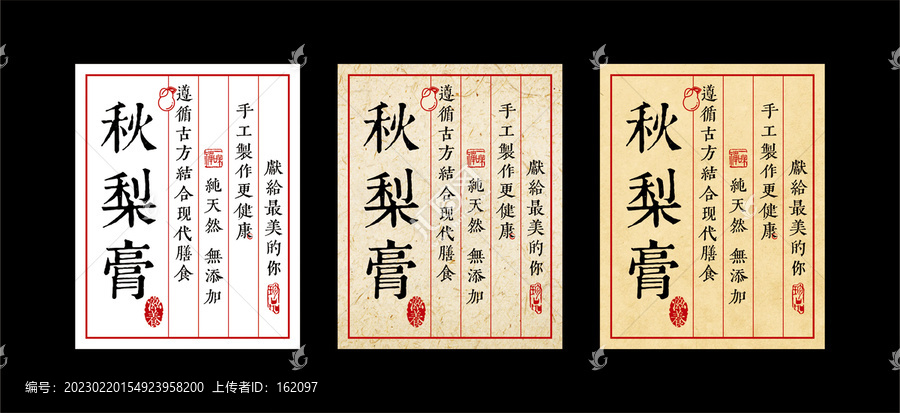 秋梨膏
遵循古方結合现代膳食
純天然 無添加
手工製作更健康
獻給最美的你
秋梨膏
遵循古方結合现代膳食
純天然 無添加
手工製作更健康
獻給最美的你
秋梨膏
遵循古方結合现代膳食
純天然 無添加
手工製作更健康
獻給最美的你
编号：20230220154923958200 上传者ID：162097